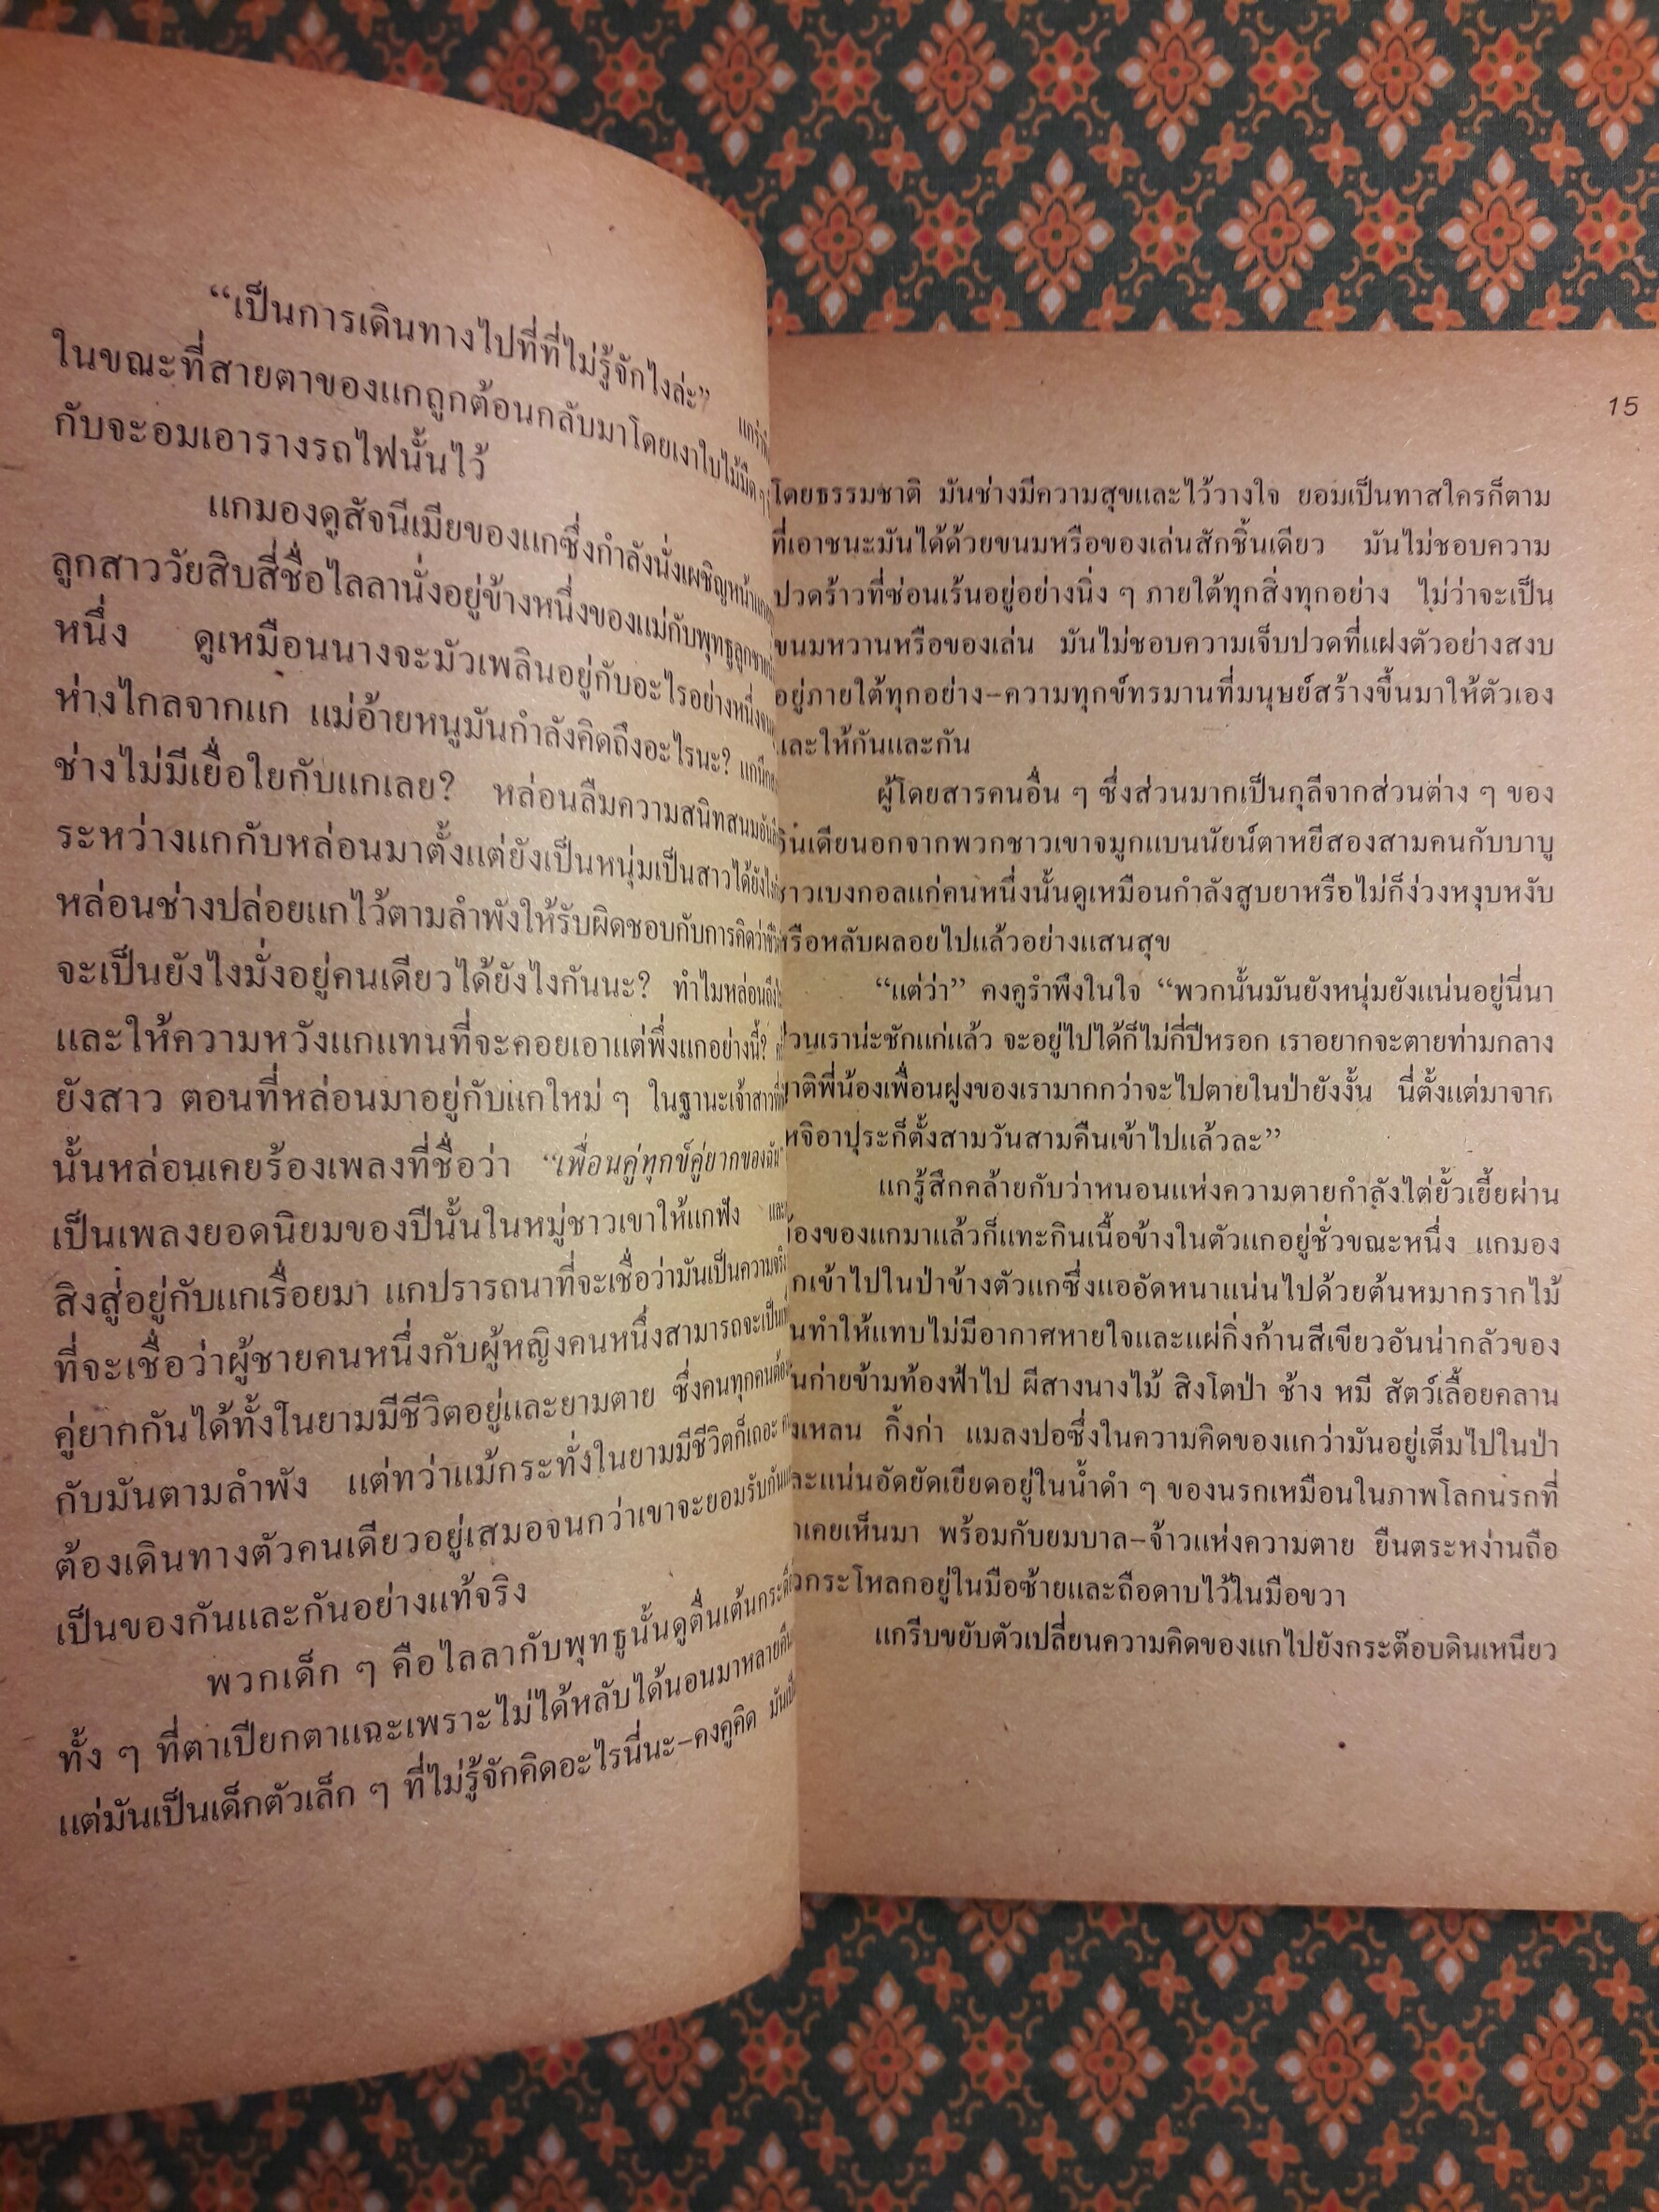 “เป็นการเดินทางไปที่ที่ไม่รู้จักไงล่ะ”
ในขณะที่สายตาของแกถูกต้อนกลับมาโดยเงาใบไม้มืด ๆ
กับจะอมเอารางรถไฟนั้นไว้
แกมองดูสัจนีเมียของแกซึ่งกำลังนั่งเผชิญหน้าแก
ลูกสาววัยสิบสี่ชื่อไลลานั่งอยู่ข้างหนึ่งของแม่กับพุทธูลูกชาย
หนึ่ง ดูเหมือนนางจะมัวเพลินอยู่กับอะไรอย่างหนึ่ง
ห่างไกลจากแก แม่อ้ายหนูมันกำลังคิดถึงอะไรนะ? แกนึก
ช่างไม่มีเยื่อใยกับแกเลย? หล่อนลืมความสนิทสนม
ระหว่างแกกับหล่อนมาตั้งแต่ยังเป็นหนุ่มเป็นสาวได้ยังไง
หล่อนช่างปล่อยแกไว้ตามลำพังให้รับผิดชอบกับการคิดว่า
จะเป็นยังไงมั่งอยู่คนเดียวได้ยังไงกันนะ? ทำไมหล่อนถึง
และให้ความหวังแกแทนที่จะคอยเอาแต่พึ่งแกอย่างนี้?
ยังสาว ตอนที่หล่อนมาอยู่กับแกใหม่ ๆ ในฐานะเจ้าสาว
นั้นหล่อนเคยร้องเพลงที่ชื่อว่า “เพื่อนคู่ทุกข์คู่ยากของฉัน”
เป็นเพลงยอดนิยมของปีนั้นในหมู่ชาวเขาให้แกฟัง และ
สิงสู่อยู่กับแกเรื่อยมา แกปรารถนาที่จะเชื่อว่ามันเป็นความจริง
ที่จะเชื่อว่าผู้ชายคนหนึ่งกับผู้หญิงคนหนึ่งสามารถจะเป็น
คู่ยากกันได้ทั้งในยามมีชีวิตอยู่และยามตาย ซึ่งคนทุกคนต้อง
กับมันตามลำพัง แต่ทว่าแม้กระทั่งในยามมีชีวิตก็เถอะ
ต้องเดินทางตัวคนเดียวอยู่เสมอจนกว่าเขาจะยอมรับกัน
เป็นของกันและกันอย่างแท้จริง
พวกเด็ก ๆ คือไลลากับพุทธูนั้นดูตื่นเต้น
ทั้ง ๆ ที่ตาเปียกตาแฉะเพราะไม่ได้หลับได้นอนมาหลายคืน
แต่มันเป็นเด็กตัวเล็ก ๆ ที่ไม่รู้จักคิดอะไรนี่นะ–คงคูคิด
15
โดยธรรมชาติ มันช่างมีความสุขและไว้วางใจ ยอมเป็นทาสใครก็ตาม
ที่เอาชนะมันได้ด้วยขนมหรือของเล่นสักชิ้นเดียว มันไม่ชอบความ
ปวดร้าวที่ซ่อนเร้นอยู่อย่างนิ่ง ๆ ภายใต้ทุกสิ่งทุกอย่าง ไม่ว่าจะเป็น
ขนมหวานหรือของเล่น มันไม่ชอบความเจ็บปวดที่แฝงตัวอย่างสงบ
อยู่ภายใต้ทุกอย่าง–ความทุกข์ทรมานที่มนุษย์สร้างขึ้นมาให้ตัวเอง
และให้กันและกัน
ผู้โดยสารคนอื่น ๆ ซึ่งส่วนมากเป็นกุลีจากส่วนต่าง ๆ ของ
อินเดียนอกจากพวกชาวเขาจมูกแบนนัยน์ตาหยีสองสามคนกับบาบู
ชาวเบงกอลแก่คนหนึ่งนั้นดูเหมือนกำลังสูบยาหรือไม่ก็ง่วงหงุบหงับ
หรือหลับผลอยไปแล้วอย่างแสนสุข
“แต่ว่า” คงคูรำพึงในใจ “พวกนั้นมันยังหนุ่มยังแน่นอยู่นี่นา
ส่วนเราน่ะชักแก่แล้ว จะอยู่ไปได้ก็ไม่กี่ปีหรอก เราอยากจะตายท่ามกลาง
ญาติพี่น้องเพื่อนฝูงของเรามากกว่าจะไปตายในป่ายังงั้น นี่ตั้งแต่มาจาก
โหจิอาปุระก็ตั้งสามวันสามคืนเข้าไปแล้วละ”
แกรู้สึกคล้ายกับว่าหนอนแห่งความตายกำลังไต่ยั้วเยี้ยผ่าน
ท้องของแกมาแล้วก็แทะกินเนื้อข้างในตัวแกอยู่ชั่วขณะหนึ่ง แกมอง
ลึกเข้าไปในป่าข้างตัวแกซึ่งแออัดหนาแน่นไปด้วยต้นหมากรากไม้
จนทำให้แทบไม่มีอากาศหายใจและแผ่กิ่งก้านสีเขียวอันน่ากลัวของ
มันก่ายข้ามท้องฟ้าไป ผีสางนางไม้ สิงโตป่า ช้าง หมี สัตว์เลื้อยคลาน
จิ้งเหลน กิ้งก่า แมลงปอซึ่งในความคิดของแกว่ามันอยู่เต็มไปในป่า
และแน่นอัดยัดเยียดอยู่ในน้ำดำ ๆ ของนรกเหมือนในภาพโลกนรกที่
เคยเห็นมา พร้อมกับยมบาล–จ้าวแห่งความตาย ยืนตระหง่านถือ
หัวกระโหลกอยู่ในมือซ้ายและถือดาบไว้ในมือขวา
แกรีบขยับตัวเปลี่ยนความคิดของแกไปยังกระต๊อบดินเหนียว